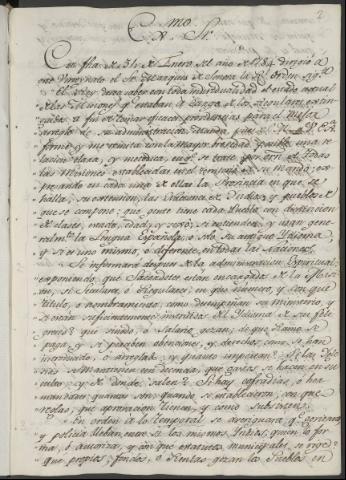 2
Exmo. Sr.
Con fha. de 31 de Enero del año de 1784 dirigió a
este Virreynato el Sr. Marques de Sonora la Rl. Orden sigte.
"El Rey desea saber con toda individualidad el estado actual
de las Misiones que estaban a cargo de los Jesuitas extin-
guidos a fin de tomar eficaces providencias para el mejor
arreglo de su administracion. Manda pues S. M. que V. E. in-
forme y me remita con la mayor brevedad posible una re-
lacion clara, y metodica, en qe. se trate por orn. de todas
las Misiones establecidas en el término de su mando, ex-
presando en cada una de ellas la Provincia en que se
halla, su extension, los Idiomas de Indios, y pueblos de
que se compone; que gente tiene cada Pueblo con distincion
de clases, estado, edad, y sexo; si entienden, y usan gene-
ralmte. la Lengua Española, o solo su antiguo Idioma,
y si es uno mismo, o diferente en todas las Naciones.
Se informará despues de la administracion Espiritual,
exponiendo que Sacerdotes están encargados de la Mision,
si Seculares, o Regulares; en que número, y con que
titulo, o nombramiento; como desempeñan su ministerio, y
si están suficientemente instruidos del Idioma de sus feli-
greses? que sinodo, o Salario gozan; de que Ramo se
paga y si perciben obvenciones, y derechos, como se han
introducido, o arreglado, y quanto importan? Si las Igle-
sias se mantienen con decencia, que gastos se hacen en su
culto, y de donde salen? Si hay cofradias, o her-
mandades; quantas son, quando se establecieron, con que
reglas, que aprovacion tienen, y como subsisten.
En orden a lo temporal se averiguará que govierno,
y policia llevan entre si los mismos Indios, quien la for-
ma, o autoriza, y con que estatutos municipales se rige?
Que propios, fondos, o Rentas gozan los Pueblos en